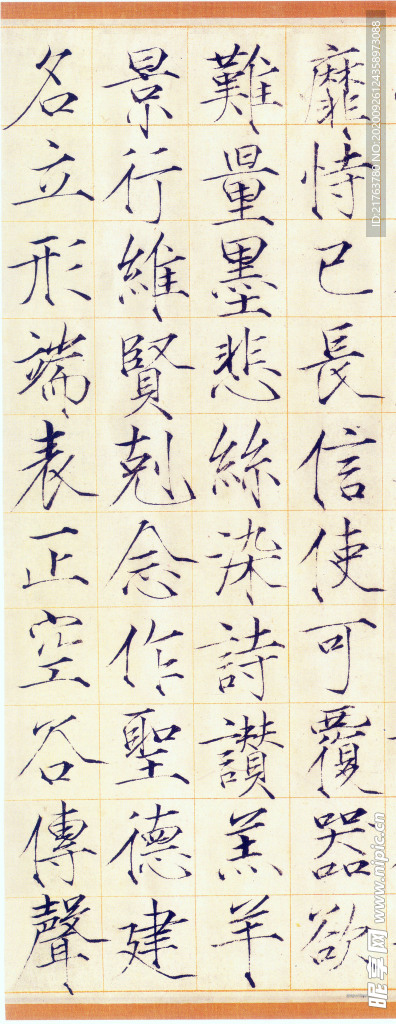 靡恃己長信使可覆器欲
難量墨悲絲染詩讃羔羊
景行維賢剋念作聖德建
名立形端表正空谷傳聲
ID:21763780 NO:20200926124358973088
昵享网 www.nipic.cn